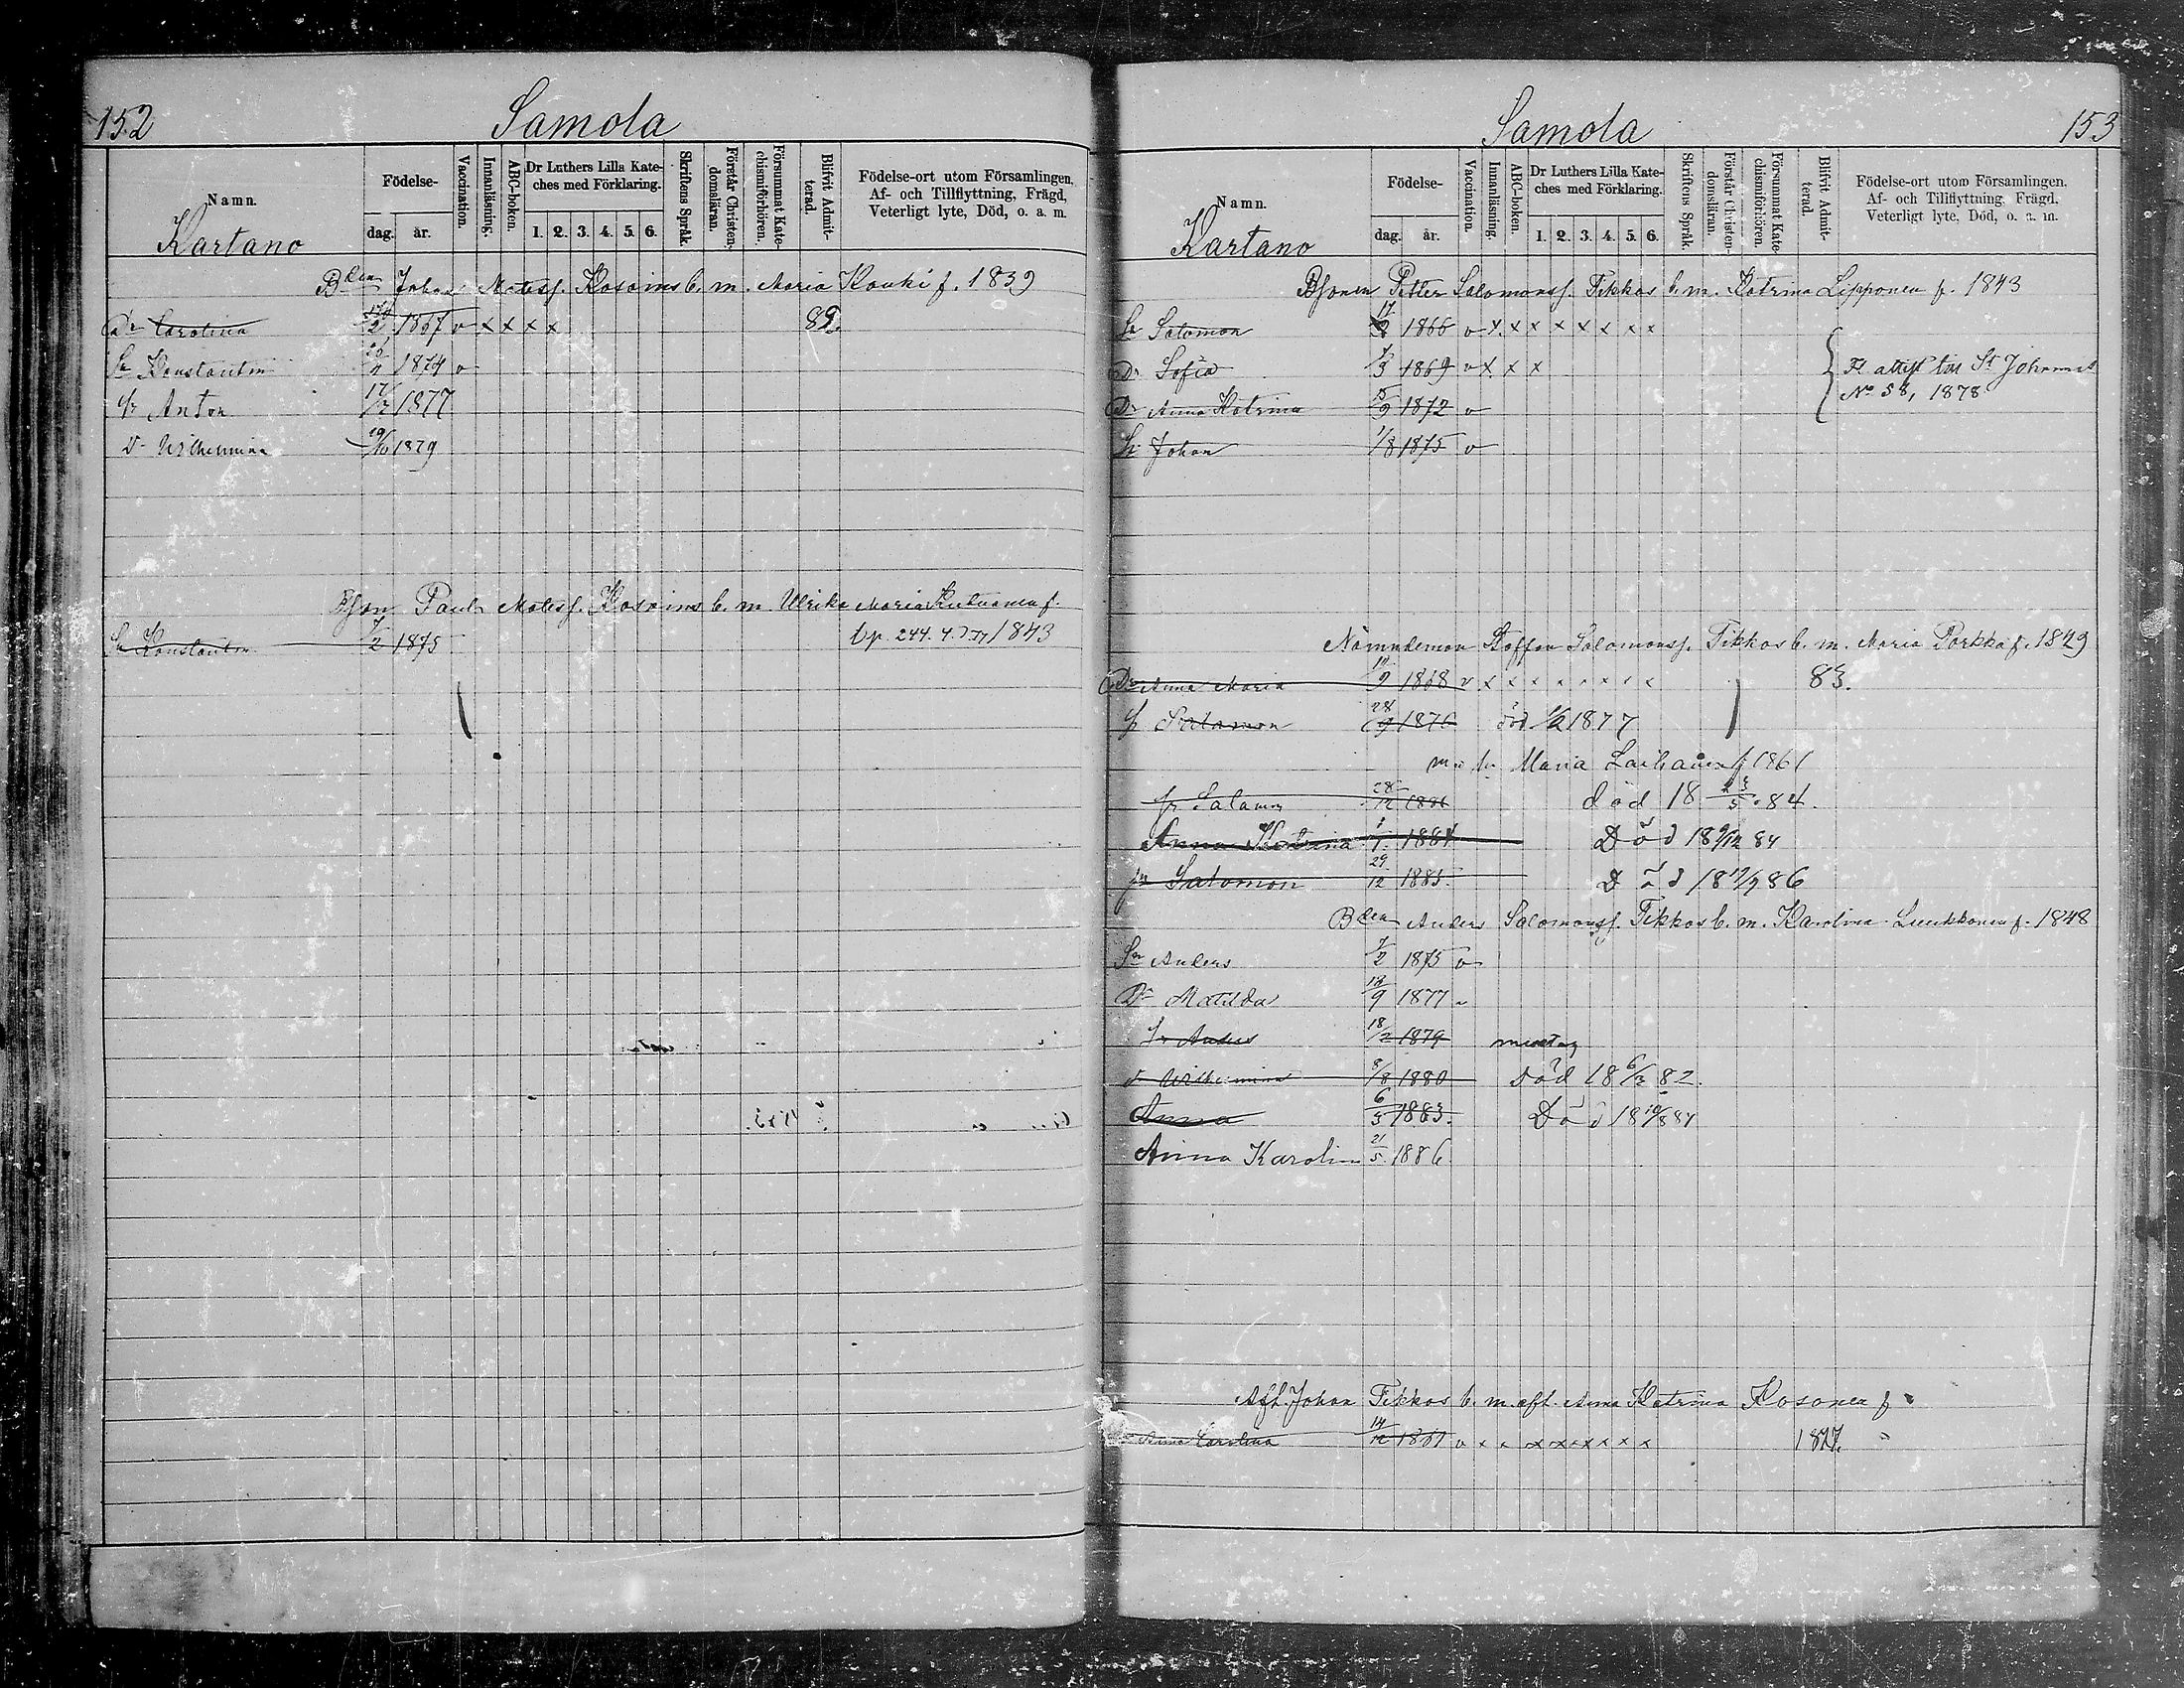 152
Samola
Namn.
Födelse-
dag.
år.
Vaccination.
Innanläsning.
ABC-boken.
Dr Luthers Lilla Kate-
ches med Förklaring.
1. 2. 3. 4. 5. 6.
Skriftens Språk.
Förstår Christen-
domsläran.
Försummat Kate-
chismiförhören.
Blifvit Admit-
terad.
Födelse-ort utom Församlingen,
Af- och Tillflyttning, Frägd,
Veterligt lyte, Död, o. a. m.
Kartano
Johan Matss. Kosoins b. m. Maria Kouki f. 1839
Dr Carolina 1867 v x x x x 89.
Sr Konstantin 1874 v
Sr Anton 17/7 1877
Dr Wilhelmina 19/10 1879
Paul Matss. Kosoins b. m. Ulrika Maria f.
Sr Konstantin 7/2 1875 bp. 244. 1843
153
Samola
Namn.
Födelse-
dag.
år.
Vaccination.
Innanläsning.
ABC-boken.
Dr Luthers Lilla Kate-
ches med Förklaring.
1. 2. 3. 4. 5. 6.
Skriftens Språk.
Förstår Christen-
domsläran.
Försummat Kate-
chismiförhören.
Blifvit Admit-
terad.
Födelse-ort utom Församlingen,
Af- och Tillflyttning, Frägd,
Veterligt lyte, Död, o. a. m.
Kartano
Petter Salomonss. Tikkas b. m. Katrina Lipponen f. 1843
Sr Salomon 1866 v x x x x x x x x
Dr Sofia 1869 v x x x attest till St Johannes
Dr Anna Katrina 5/9 1872 v No 58, 1878
Sr Johan 1/8 1875 v
Nämndeman Staffan Salomonss. Tikkas b. m. Maria Porkka f. 1849
Dr Anna Maria 1868 v x x x x x x x x 83.
Sr Salamon 28/9 1876 död 1877
Maria Laihanen f 1861
Sr Salamon 28/12 död 18 23/5 84.
Anna Katrina 1/1 1884 Död 18 9/12 84
Sr Salomon 29/12 1885. Död 18 86
Anders Salomonss. Tikkas b. m. Karolina Luukkonen f. 1848
Sr Anders 7/2 1875 v
Dr Matilda 13/9 1877
Sr Anders 18/2 1879 misstag
Dr Wilhelmina 8/8 1880 Död 18 6/3 82.
Anna 6/5 1883. Död 18 10/8 84
Anna Karolina 21/5 1886.
Afl. Johan Tikkas b. m. afl. Anna Katrina Kosonen f
Anna Carolina 14/12 1861 v x x x x x x x x 1877.